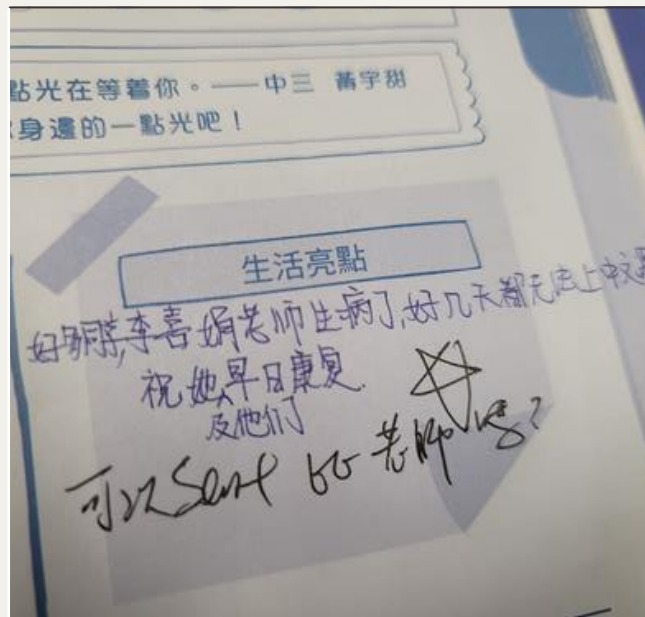 點光在等着你。——中三 黃宇甜
身邊的一點光吧！
生活亮點
李喜娟老师生病了,好几天都无法上中文
祝她早日康复
及他们
可以Sent 给老師嗎?